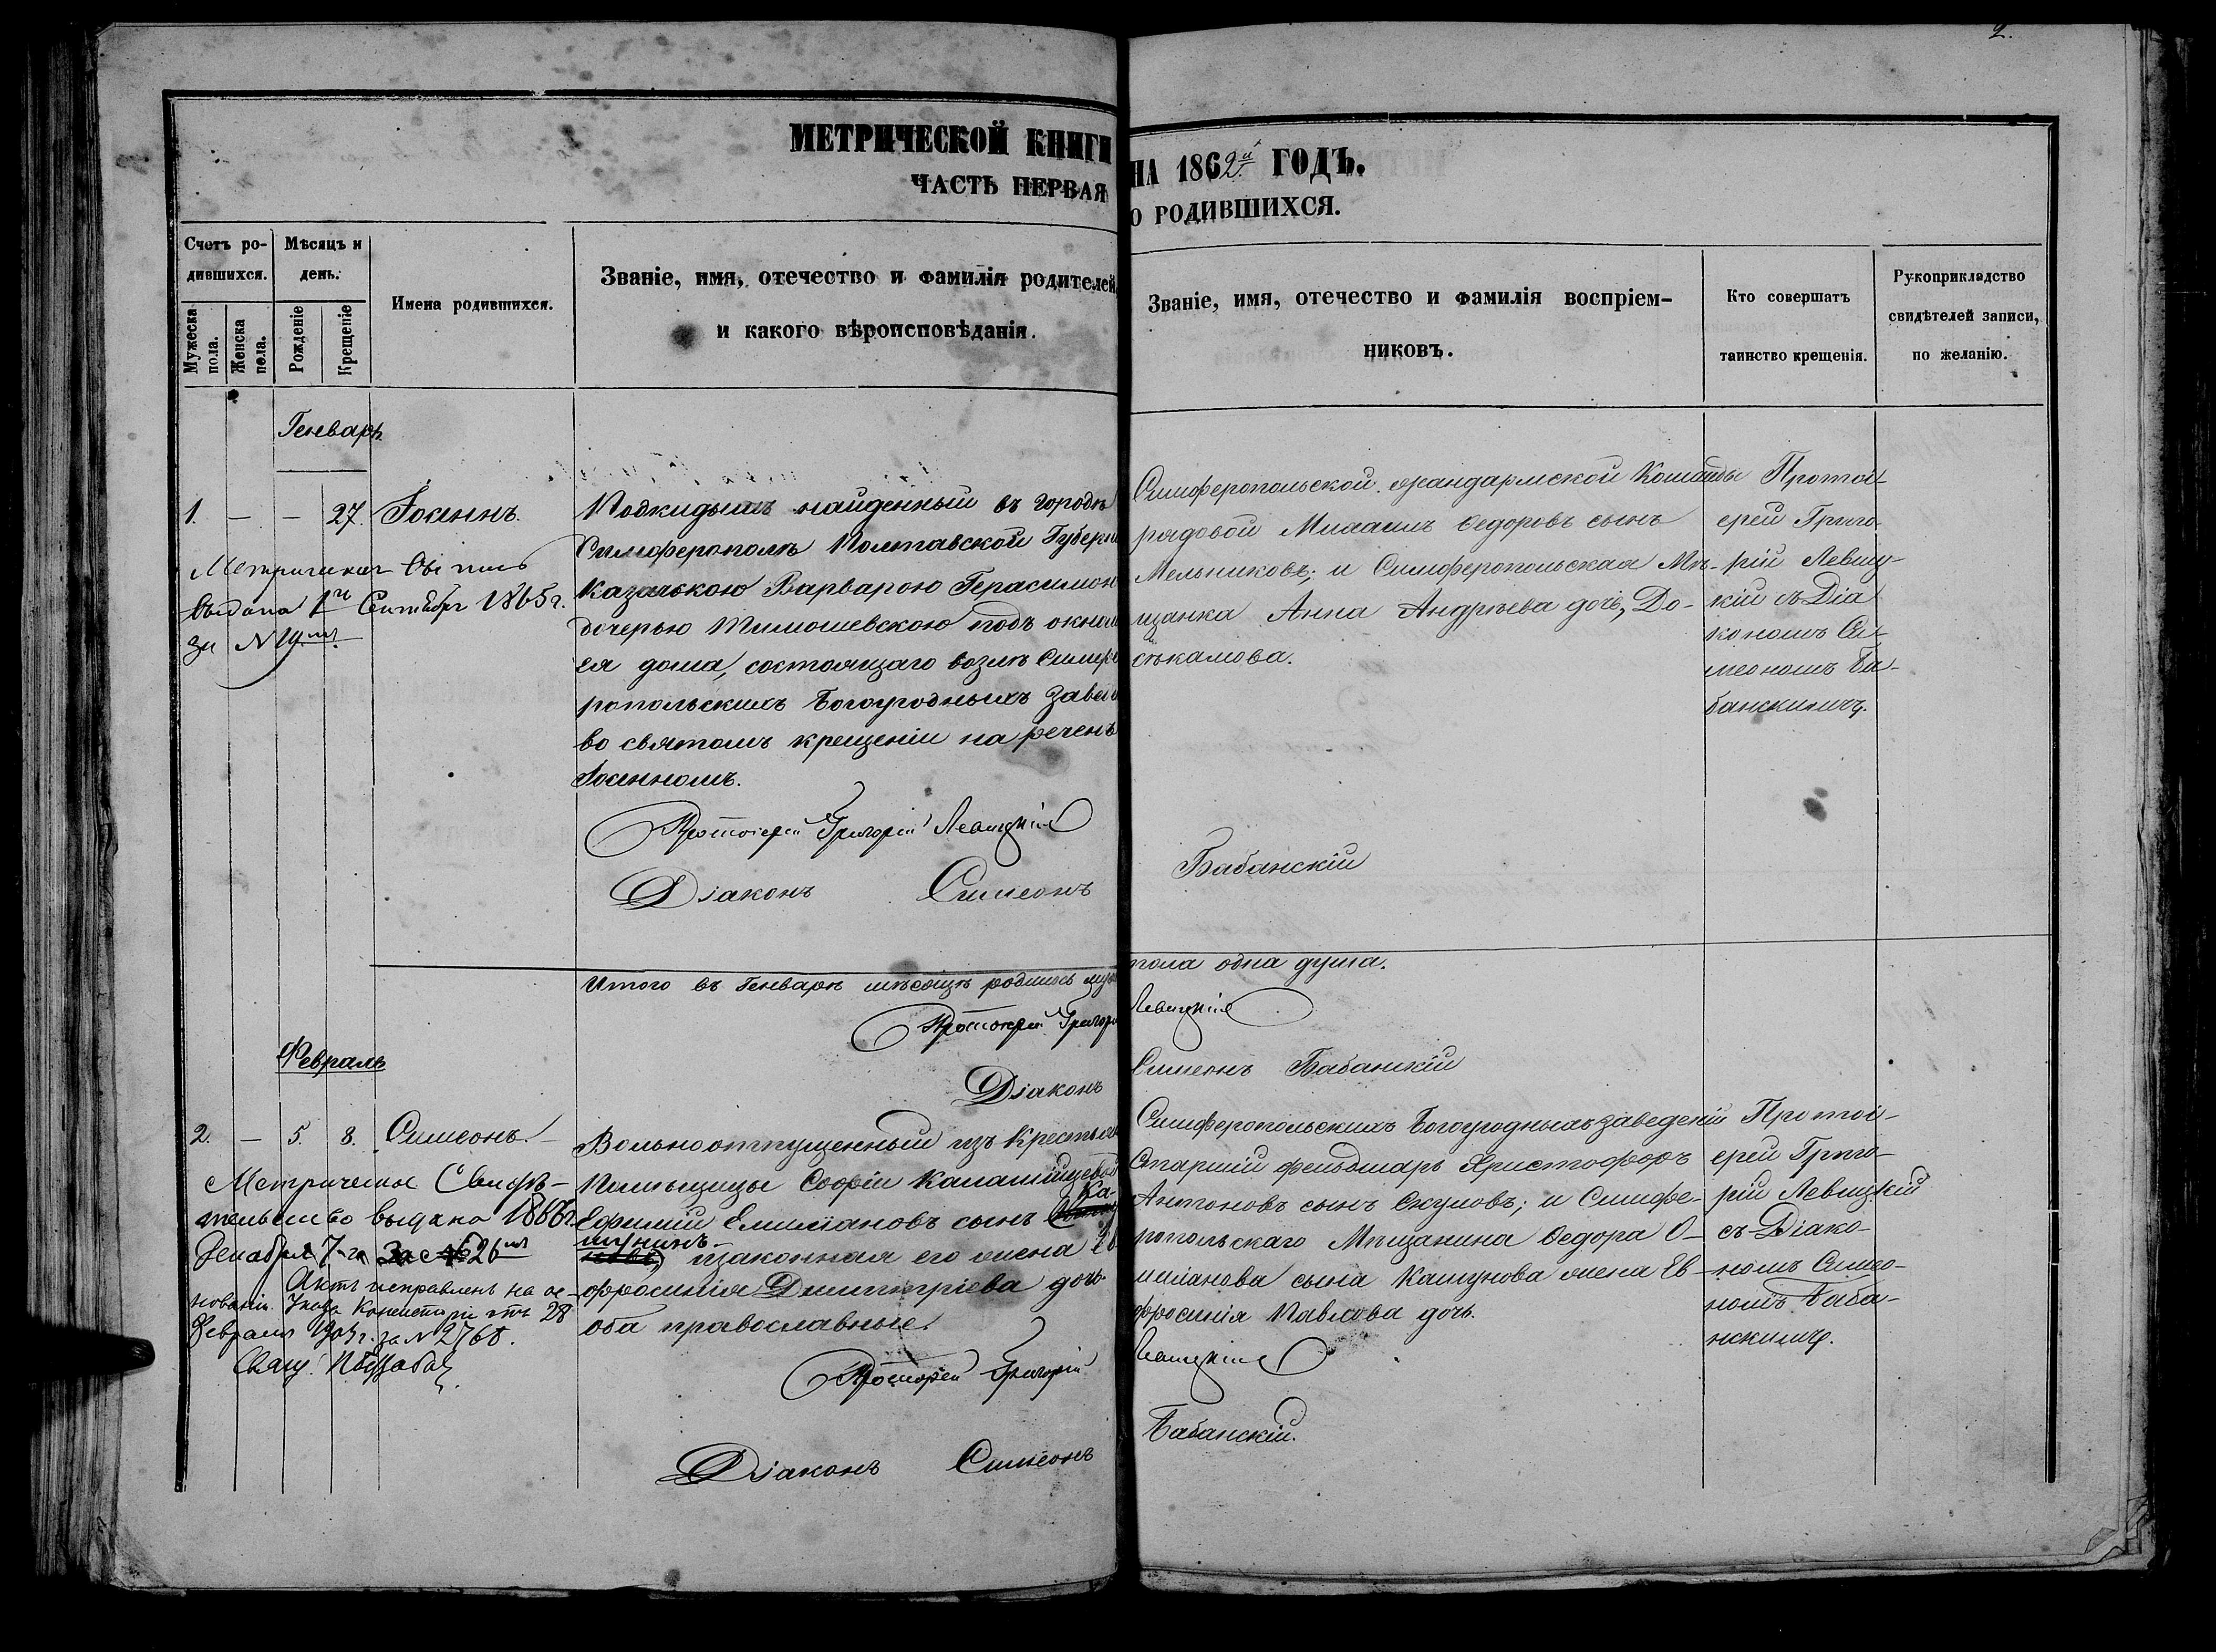 2.
МЕТРИЧЕСКОЙ КНИГИ НА 1862й ГОДЪ.
ЧАСТЬ ПЕРВАЯ О РОДИВШИХСЯ.
Счетъ ро-
дившихся.
Мужеска пола.
Женска пола.
Мѣсяцъ и
день.
Рожденіе
Крещеніе
Имена родившихся.
Званіе, имя, отечество и фамилія родителей,
и какого вѣроисповѣданія.
Званіе, имя, отечество и фамилія воспріем-
никовъ.
Кто совершатъ
таинство крещенія.
Рукоприкладство
свидѣтелей записи,
по желанію.
Генварь
1. — — 27. Іоаннъ.
выдана 1го Сентября 1865 г.
за N 19
Подкидышъ найденный въ городѣ
Симферополѣ Полтавской Губерн
Казачкою Варварою Герасимов
дочерью Тимошевскою подъ окном
ея дома, состоящаго возлѣ Симфе
ропольскихъ Богоугодныхъ Завед
во святомъ крещеніи нареченъ
Іоанномъ.
Протоіерей Григорій Левицкій
Діаконъ Симеонъ Бабанскій
Симферопольской жандармской Команды
рядовой Михаилъ Федоровъ сынъ
Мельниковъ; и Симферопольская Мѣ-
щанка Анна Андрѣева дочь, До-
сѣкамова.
Протоі-
ерей Григо-
рій Левиц-
кій съ Діа
кономъ Си-
меономъ Ба-
банскимъ.
Итого въ Генварѣ мѣсяцѣ родилось муж пола одна душа.
Протоіерей Григорі Левицкій
Діаконъ Симеонъ Бабанскій
Февраль
2. — 5. 8. Симеонъ.
Метрическое Свидѣ-
тельство выдано 1866 г.
Декабря 7го За N 26
Актъ исправленъ на ос-
нованіи Указа Консисторіи отъ 28
Февраля г. за N 2768.
Свящ.
Вольноотпущенный изъ Крестьян
Помѣщицы Софіи
Ефимій Емиліановъ сынъ Ка-
шунинъ
изаконная его жена Ев
фросинія Димитріева дочь
оба православные.
Протоіерей Григорій Левицкій
Діаконъ Симеонъ Бабанскій.
Симферопольскихъ Богоугодныхъ заведеній
Старшій фельдшаръ Христофоръ
Антоновъ сынъ; и Симфе-
ропольскаго Мѣщанина Федора О-
миліанова сына Кашунова жена Ев-
фросинія Павлова дочь.
Протоі-
ерей Григо-
рій Левицкій
съ Діако-
номъ Симео-
номъ Баба-
нскимъ.